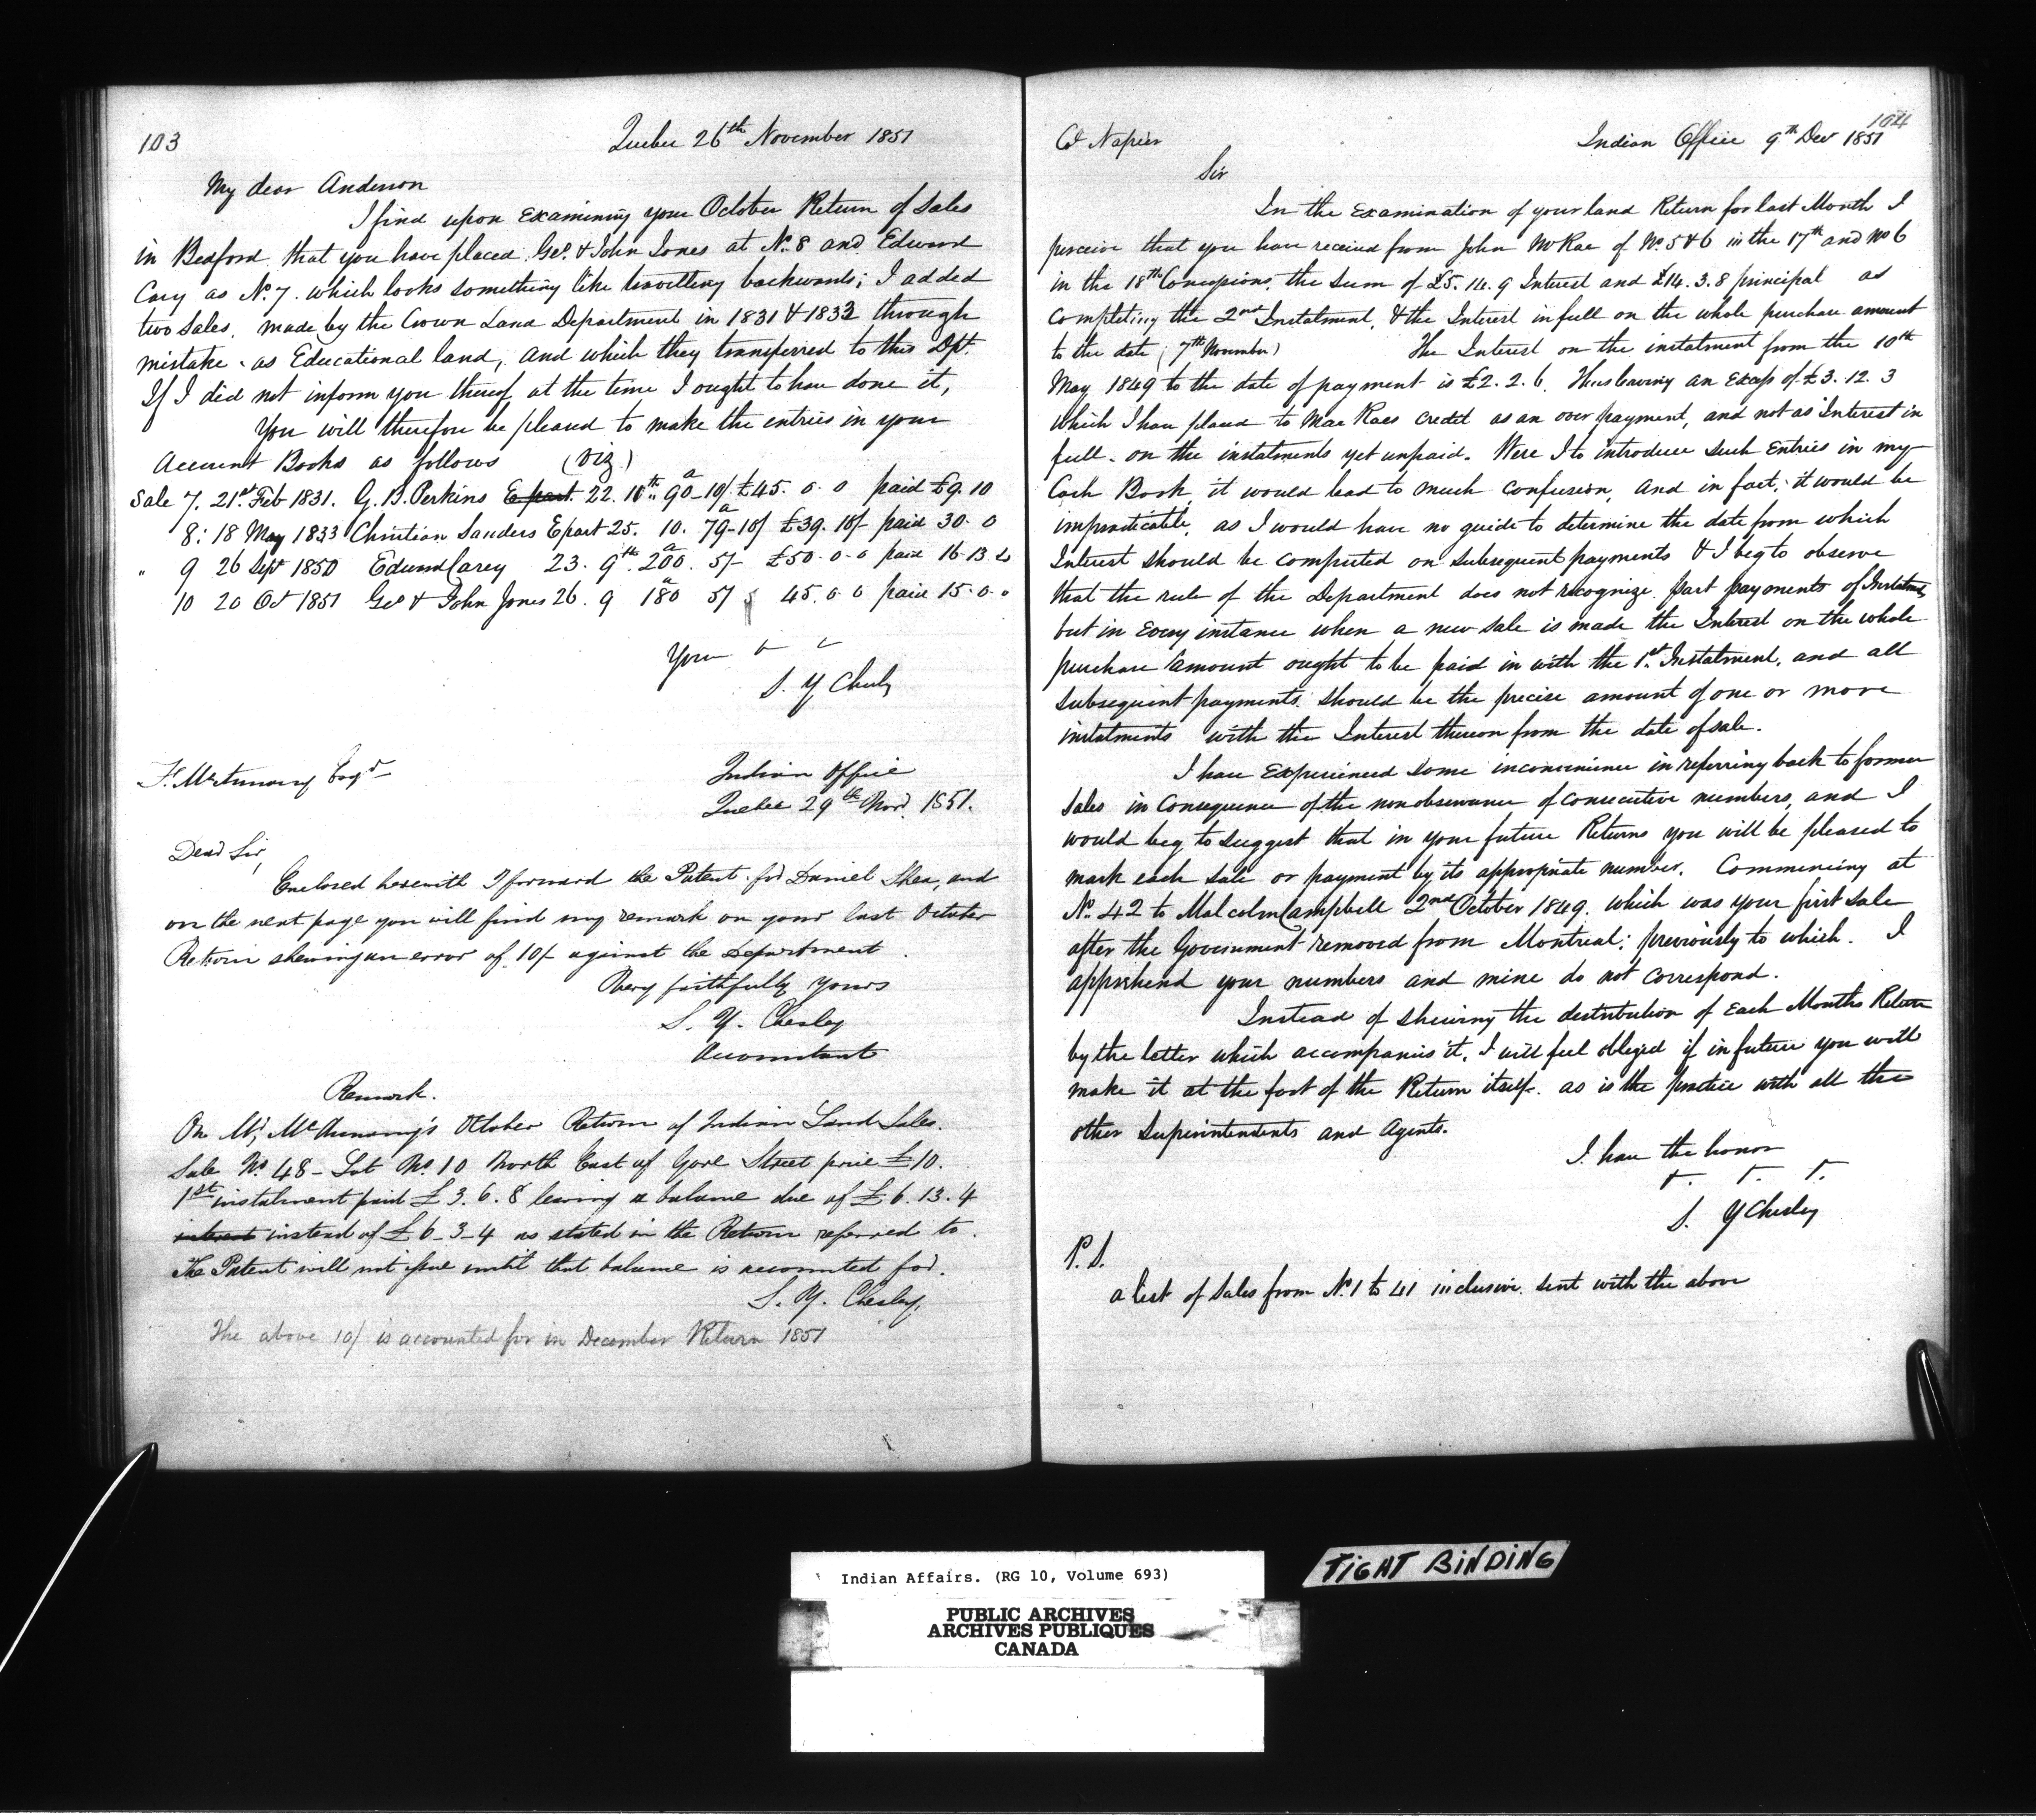 103
Quebec 26th November 1851
My dear Anderson
I find upon Examining your October Return of Sales
in Bedford, that you have placed Geo. & John Jones at No. 8 and Edward
Cary as No. 7. which looks something like travelling backwards; I added
two Sales, made by the Crown Land Department in 1831 & 1833 through
mistake as Educational land, and which they transferred to this Dpt.
If I did not inform you thereof at the time I ought to have done it,
You will therefore be pleased to make the entries in your
Account Books as follows (viz)
Sale 7. 21st Feb 1831. G. B. Perkins E part 22. 10th 90a - 10/ £45. 0. 0 paid £9. 10
8: 18 May 1833 Christian Sanders E part 25. 10. 79a - 10/ £39. 10/- paid 30. 0
" 9 26 Sept 1850 Edwd Carey 23. 9th. 200a. 5/- £50. 0. 0 paid 16. 13. 4
10 20 Oct 1851 Geo & John Jones 26. 9 180a 5/ 45. 0. 0 paid 15. 0. 0
Your
S. Y. Chesly
F. McAnnany Esqr
Indian Office
Quebec 29th Novr. 1851.
Dear Sir,
Enclosed herewith I forward the Patent for Daniel Shea, and
on the next page you will find my remark on your last October
Return shewing an error of 10/- against the Department.
Very faithfully yours
S. Y. Chesley
Accountant
Remark.
On Mr. McAnnany's October Return of Indian Land Sales.
Sale No 48 - Lot No. 10 North East of Gore Street price £10.
1st instalment paid £3. 6. 8 leaving a balance due of £6. 13. 4
interest instead of £6 - 3 - 4 as stated in the Return referred to.
The Patent will not issue until that balance is accounted for.
S. Y. Chesley.
The above 10/ is accounted for in December Return 1851
104
Col Napier
Indian Office 9th Decr 1851
Sir
In the Examination of your land Return for last Month I
perceive that you have received from John McRae of No. 5 & 6 in the 17th and No 6
in the 18th Concessions, the sum of £5. 14. 9 Interest and £14. 3. 8 principal as
Completing the 2nd Instalment, & the Interest in full on the whole purchase amount
to the date (7th November) The Interest on the instalment from the 10th
May 1849 to the date of payment is £2. 2. 6. Thus leaving an Excess of £3. 12. 3
which I have placed to MacRaes credit as an over payment, and not as Interest in
full on the instalments yet unpaid. Were I to introduce such Entries in my
Cash Book, it would lead to much confusion, and in fact, it would be
impracticable, as I would have no guide to determine the date from which
Interest should be computed on subsequent payments & I beg to observe
that the rule of the Department does not recognize part payments of Instalments,
but in Every instance when a new sale is made the Interest on the whole
purchase amount ought to be paid in with the 1st Instalment, and all
subsequent payments should be the precise amount of one or more
instalments with the Interest thereon from the date of sale.
I have Experienced some inconvenience in referring back to former
Sales in Consequence of the nonobservance of consecutive numbers, and I
would beg to suggest that in your future Returns you will be pleased to
mark each sale or payment by its appropriate number. Commencing at
No. 42 to Malcolm Campbell 2nd October 1849. which was your first sale
after the Government removed from Montreal; previously to which. I
apprehend your numbers and mine do not correspond.
Instead of shewing the distribution of Each Months Return
by the letter which accompanies it, I will feel obliged if in future you will
make it at the foot of the Return itself. as is the practice with all the
other Superintendents and Agents.
I have the honor
S. Y Chesley
P.S.
a list of Sales from No. 1 to 41 inclusive sent with the above
Indian Affairs. (RG 10, Volume 693)
PUBLIC ARCHIVES
ARCHIVES PUBLIQUES
CANADA
TIGHT BINDING